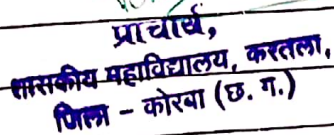 प्राचार्य,
शासकीय महाविद्यालय, करतला,
जिला - कोरबा (छ. ग.)